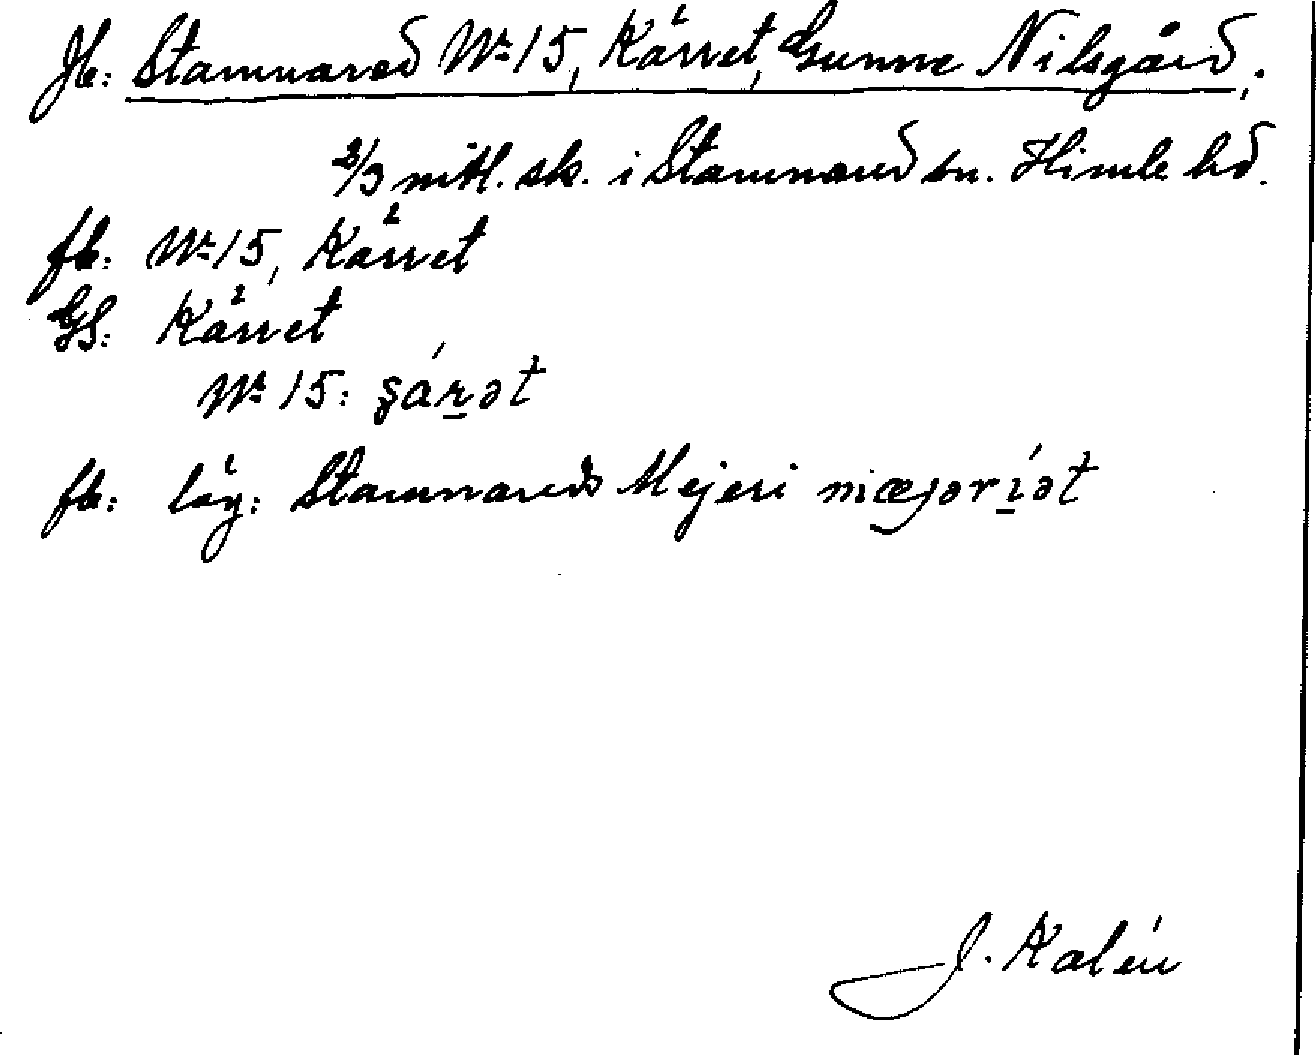 Jb: Stamnared No 15, Kärret, Gunne Nilsgård,.
2/3 mtl. sk. i Stamnared sn. Himle hd.
fb: No 15, Kärret
GS: Kärret
No 15: şárət
fb: läg: Stamnareds Mejeri mæjəríət
J. Kalén